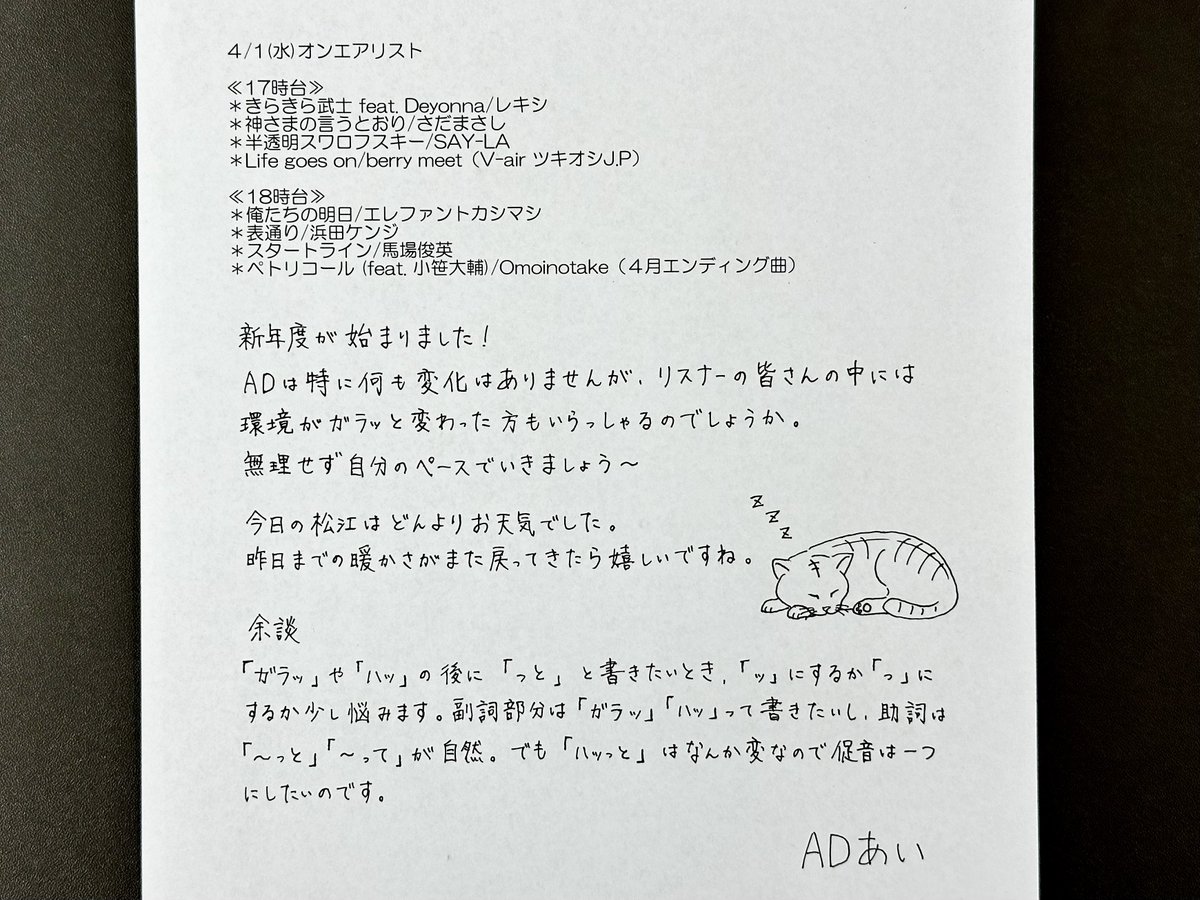 4/1(水)オンエアリスト
≪17時台≫
＊きらきら武士 feat. Deyonna/レキシ
＊神さまの言うとおり/さだまさし
＊半透明スワロフスキー/SAY-LA
＊Life goes on/berry meet（V-air ツキオシJ.P）
≪18時台≫
＊俺たちの明日/エレファントカシマシ
＊表通り/浜田ケンジ
＊スタートライン/馬場俊英
＊ペトリコール (feat. 小笹大輔)/Omoinotake（４月エンディング曲）
新年度が始まりました！
ADは特に何も変化はありませんが、リスナーの皆さんの中には
環境がガラッと変わった方もいらっしゃるのでしょうか。
無理せず自分のペースでいきましょう～
今日の松江はどんよりお天気でした。
昨日までの暖かさがまた戻ってきたら嬉しいですね。
z
z
z
余談
「ガラッ」や「ハッ」の後に「っと」と書きたいとき、「ッ」にするか「っ」に
するか少し悩みます。副詞部分は「ガラッ」「ハッ」って書きたいし、助詞は
「～っと」「～って」が自然。でも「ハッっと」はなんか変なので促音は一つ
にしたいのです。
ADあい